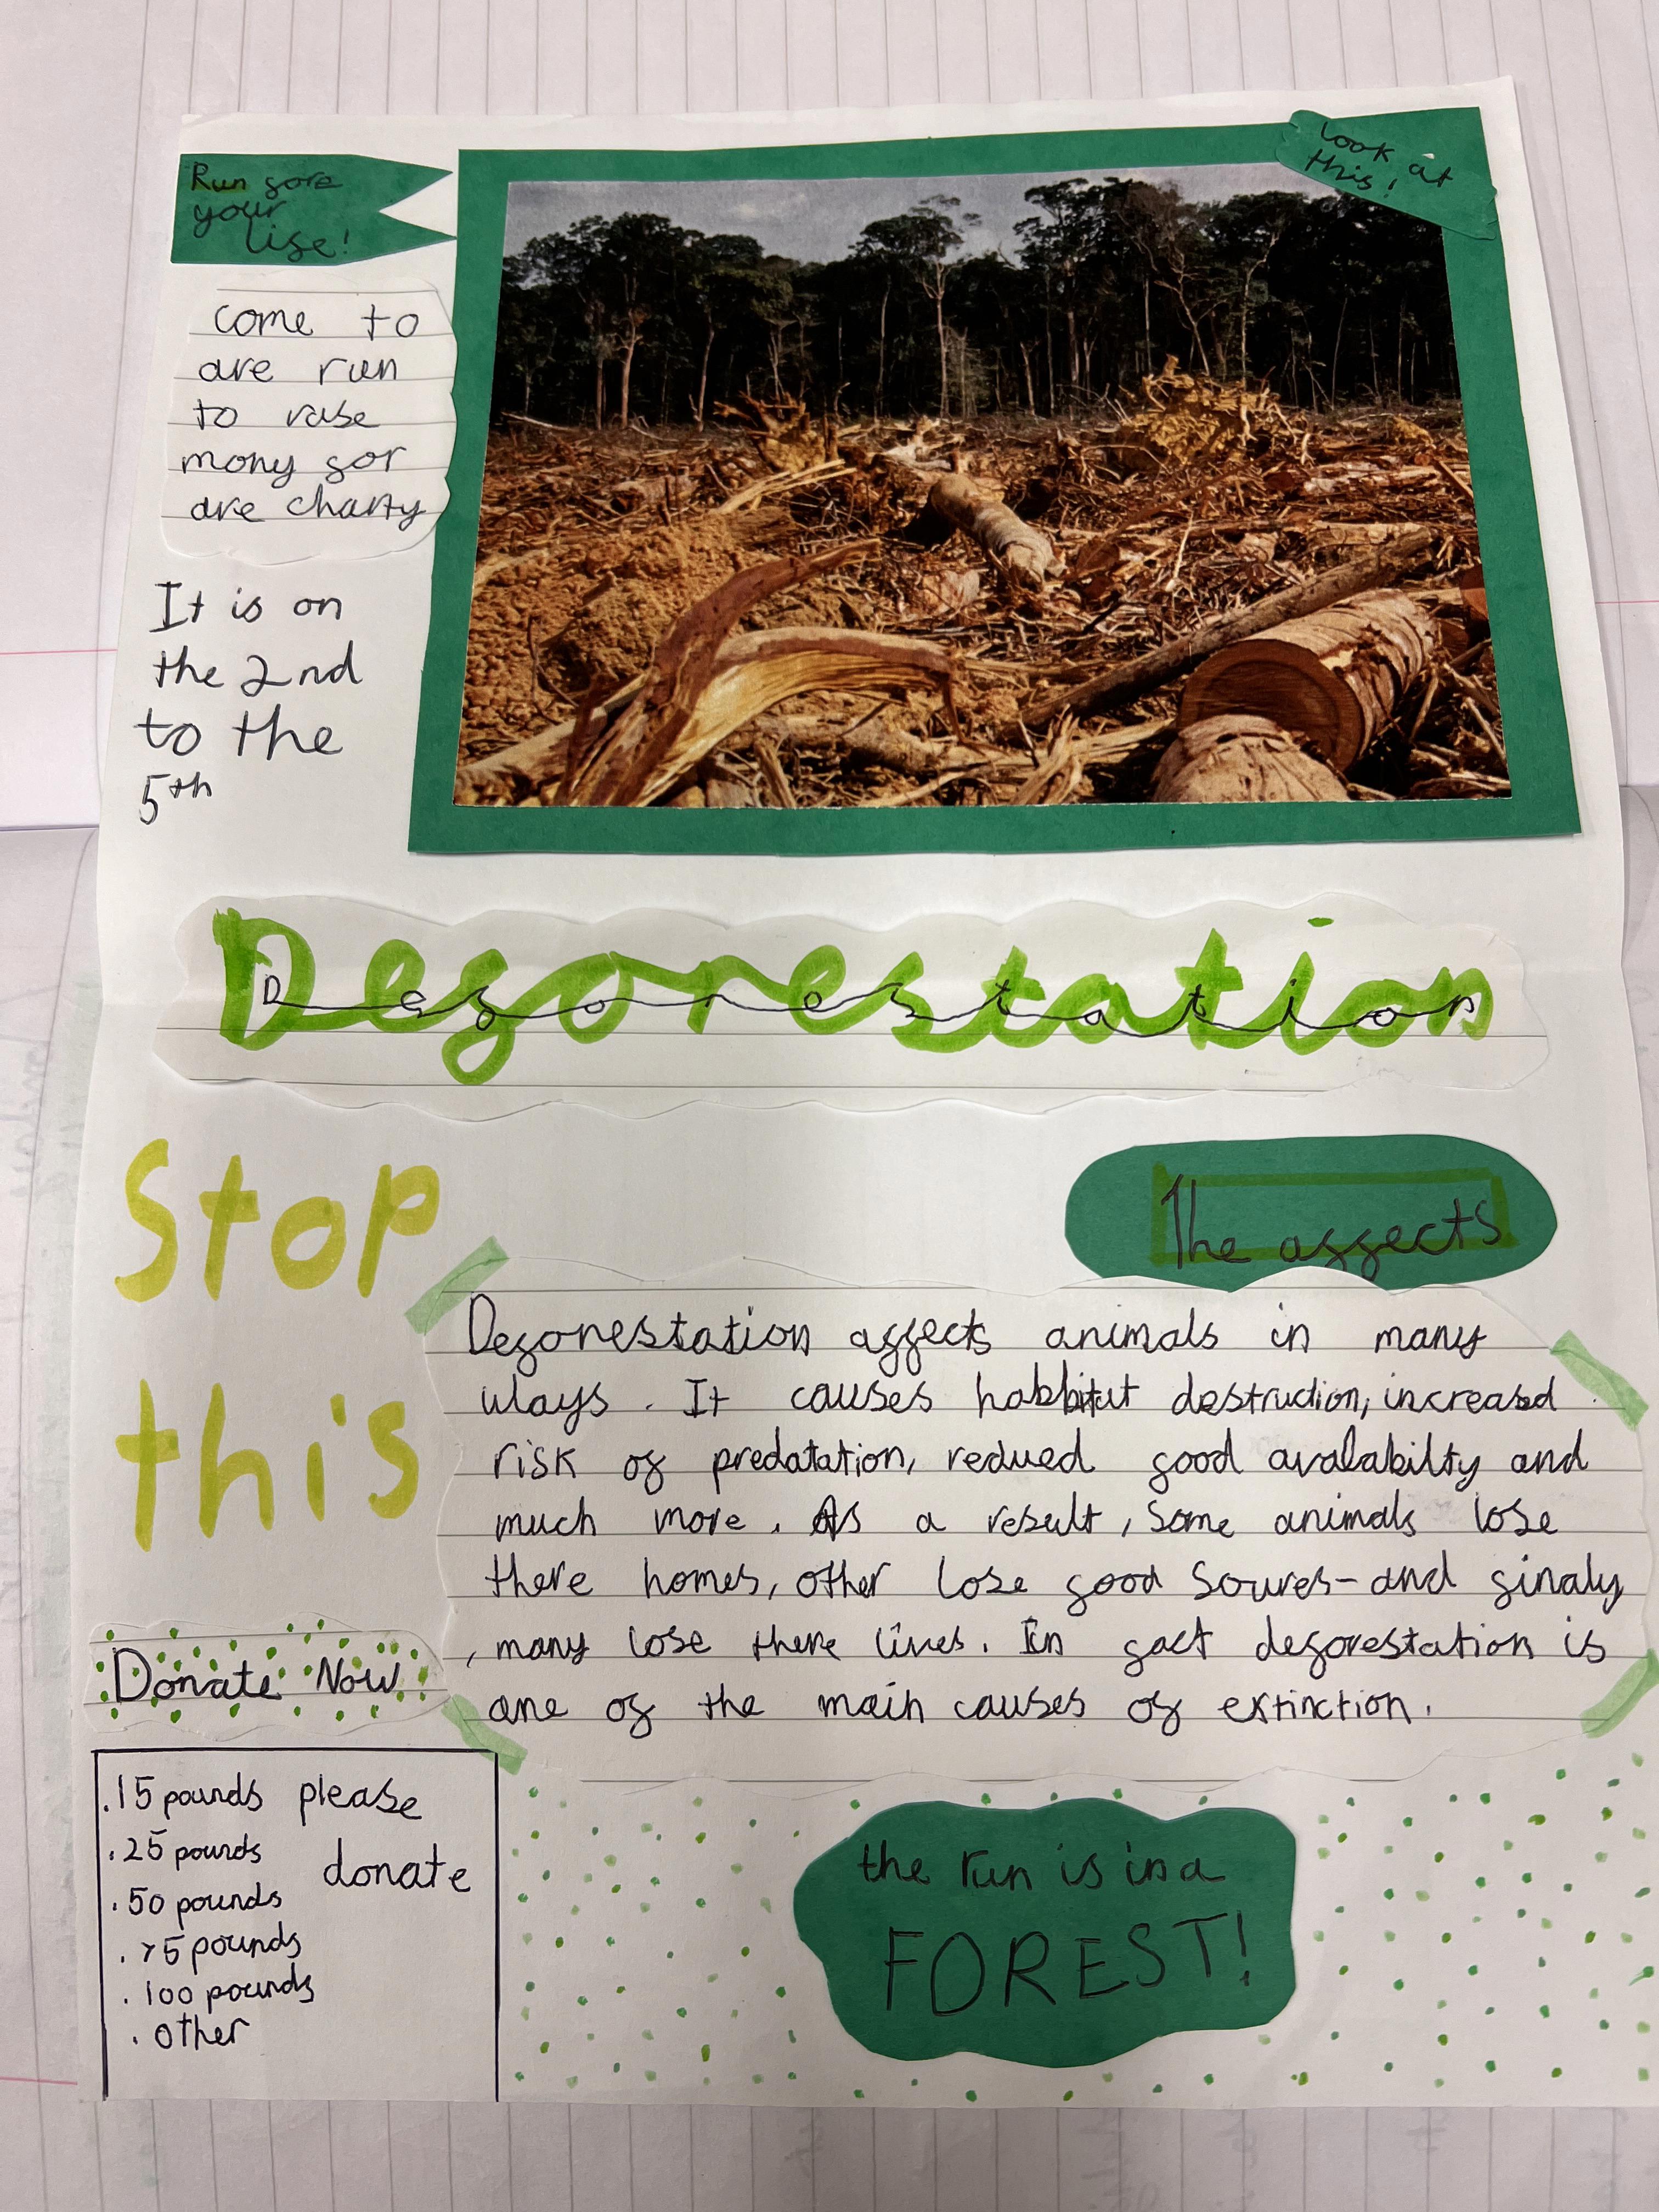 Run fore
your
life!
look at
this!
come to
are run
to rase
mony for
are charty
It is on
the 2nd
to the
5th
Deforestation
Deforestation
Stop
this
The affects
Deforestation affects animals in many
ways. It causes habbitat destruction, increased
risk of predatation, redued food avalabilty and
much more. As a result, some animals lose
there homes, other lose food soures - and finaly
, many lose there lives. In fact deforestation is
one of the main causes of extinction.
Donate Now!
. 15 pounds please
. 25 pounds
donate
. 50 pounds
. 75 pounds
. 100 pounds
. other
the run is in a
FOREST!